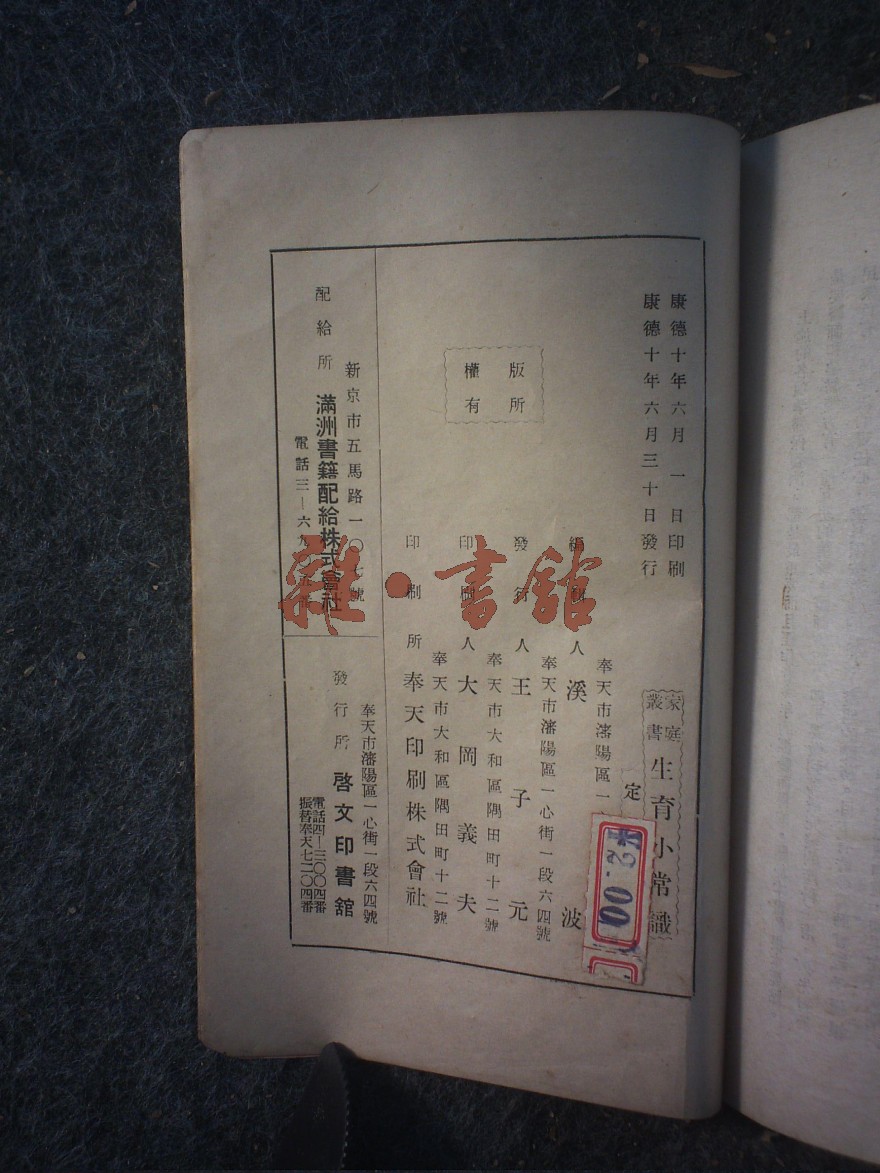 康德十年六月一日印刷
康德十年六月三十日發行
家庭叢書 生育小常識
定
¥2.00
版所
權有
奉天市瀋陽區一
人 溪 波
奉天市瀋陽區一心街一段六四號
發行人 王子元
奉天市大和區隅田町十二號
人 大岡義夫
奉天市大和區隅田町十二號
印刷所 奉天印刷株式會社
新京市五馬路一〇七號
配給所 滿洲書籍配給株式會社
電話三―六
奉天市瀋陽區一心街一段六四號
發行所 啓文印書館
電話四―三〇〇四番
振替奉天七二〇四番
雜·書館